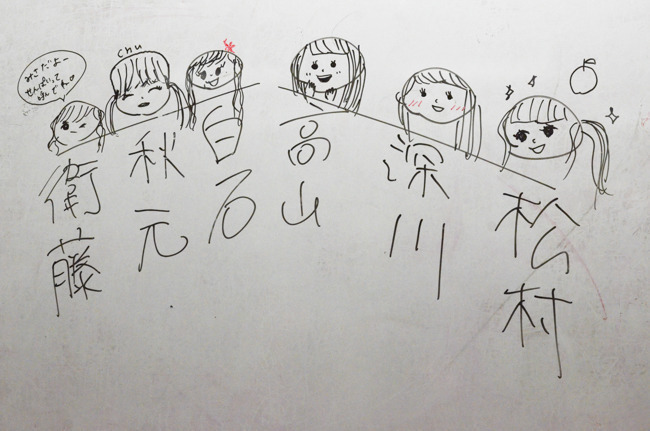 みさだよー
せんぱいって
呼んでネ。
chu
衛藤
秋元
白石
高山
深川
松村